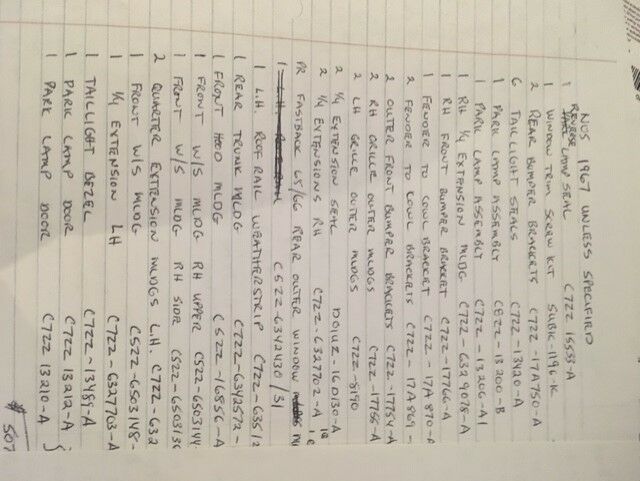 NOS 1967 UNLESS SPECIFIED
1 REVERSE LAMP SEAL C7ZZ 15533-A
1 WINDOW TRIM SCREW KIT SUBK-1196-K
2 REAR BUMPER BRACKETS C7ZZ-17A750-A
6 TAIL LIGHT SEALS C7ZZ-13420-A
1 PARK LAMP ASSEMBLY C8ZZ-13200-B
1 PARK LAMP ASSEMBLY C7ZZ-13206-A1
1 RH 1/4 EXTENSION MLDG C7ZZ-6329078-A
1 RH FRONT BUMPER BRACKET C7ZZ-17766-A
1 FENDER TO COWL BRACKET C7ZZ-17A870-A
2 FENDER TO COWL BRACKETS C7ZZ-17A869-
2 OUTER FRONT BUMPER BRACKETS C7ZZ-17754-A
2 RH GRILLE OUTER MLDGS C7ZZ-17755-A
2 LH GRILLE OUTER MLDGS C7ZZ-8190
2 1/4 EXTENSION SEAL DOUZ-160130-A
2 1/4 EXTENSIONS RH C7ZZ-6327702-A
PR FASTBACK 65/66 REAR OUTER WINDOW
C5ZZ-6342430/31
1 L.H. ROOF RAIL WEATHERSTRIP C7ZZ-6351
1 REAR TRUNK MLDG C7ZZ-6342572-
1 FRONT HOOD MLDG C5ZZ-16856-A
1 FRONT W/S MLDG RH UPPER C5ZZ-6503144
1 FRONT W/S MLDG RH SIDE C5ZZ-650313
2 QUARTER EXTENSION MLDGS L.H. C7ZZ-632
1 FRONT W/S MLDG C5ZZ-6503148-
1 1/4 EXTENSION LH C7ZZ-6327703-A
1 TAILLIGHT BEZEL C7ZZ-13489-A
1 PARK LAMP DOOR C7ZZ 13212-A
1 PARK LAMP DOOR C7ZZ 13210-A
$ 507